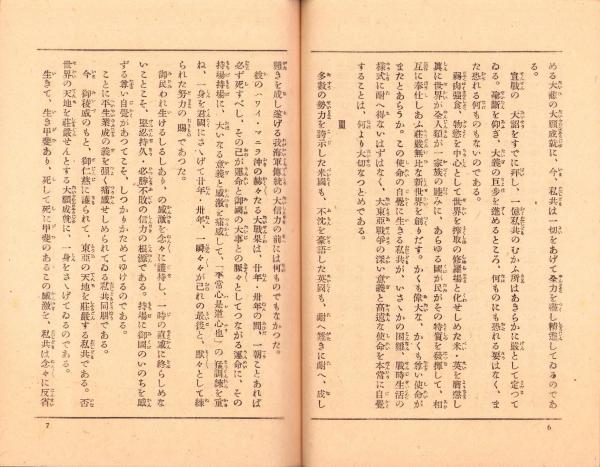 める大悲の大願成就に、今、私共は一切をあげて全力を竭し精進してゐるのであ
る。
宣戰の大詔をすでに拜し、一億私共のむかふ所はあきらかに嚴として定つて
ゐる。論斷を仰ぎ、大義の巨歩を進めるところ、何ものにも恐れる要はなく、ま
た恐れる何ものもないのである。
弱肉強食、物慾を中心として世界を搾取の修羅場と化せしめた米・英を膺懲し
眞に世界が全人類が一家族の睦みに、あらゆる國が民がその特質を發揮して、相
互に奉仕しあふ莊嚴無比な新世界を創りだす。かくも偉大な、かくも尊い使命が
またとあらうか。この使命の自覺に生きる私共が、いさゝかの困難、戰時生活の
樣式に耐へ得ないはずはなく、大東亞戰爭の深い意義と高遠な使命を本當に自覺
することは、何より大切なつとめである。
多數の勢力を誇示した米國も、不沈を豪語した英國も、耐へ難きに耐へ、成し
6
難きを成し遂げる我海軍傳統の大信力の前には何ものでもなかつた。
彼の『ハワイ・マニラ沖の赫々たる大戰果は、廿年・卅年の間、一朝ことあれば
必ず死すべし、その己が運命と御國の大事との脈々としてつながる運命に、その
持場持場に、大いなる意義と感激と痛感して、「平常心是道心也」の猛訓練を重
ね、一身を君國にさゝげて廿年・卅年、一瞬々々が己れの最後と、默々として練
られた努力の賜であつた。
御民われ生けるしるしあり、の感激を念々に護持し、一時の直感に終らしめな
いことこそ、堅忍持久、必勝不敗の信力の根源である。持場に御國のいのちを感
ずる尊い自覺があつてこそ、しつかりかためてゆけるのである。
ことに不生業成の義を強く痛感せしめられてゐる私共同朋である。
今、御稜威のもと、御仁慈に護られて、東亞の天地を莊嚴する私共である。否
世界の天地を莊嚴せんとする大願成就に、一身をさゝげてゐるのである。
生きて、生き甲斐あり、死して死に甲斐のあるこの感激を、私共は念々に反省
7